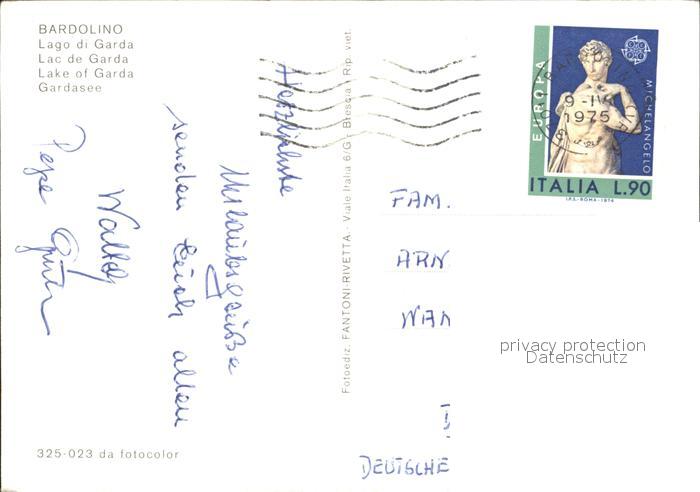 BARDOLINO
Lago di Garda
Lac de Garda
Lake of Garda
Gardasee
Herzlichste
Urlaubsgrüße
senden Euch allen
Walter
325-023 da fotocolor
Fotoediz. FANTONI-RIVETTA - Viale Italia 6/G - Brescia - Rip. viet.
EUROPA
MICHELANGELO
9-IV
1975
ITALIA L.90
I.P.S.-ROMA-1974
FAM.
ARN
WAN
DEUTSCHE
privacy protection
Datenschutz